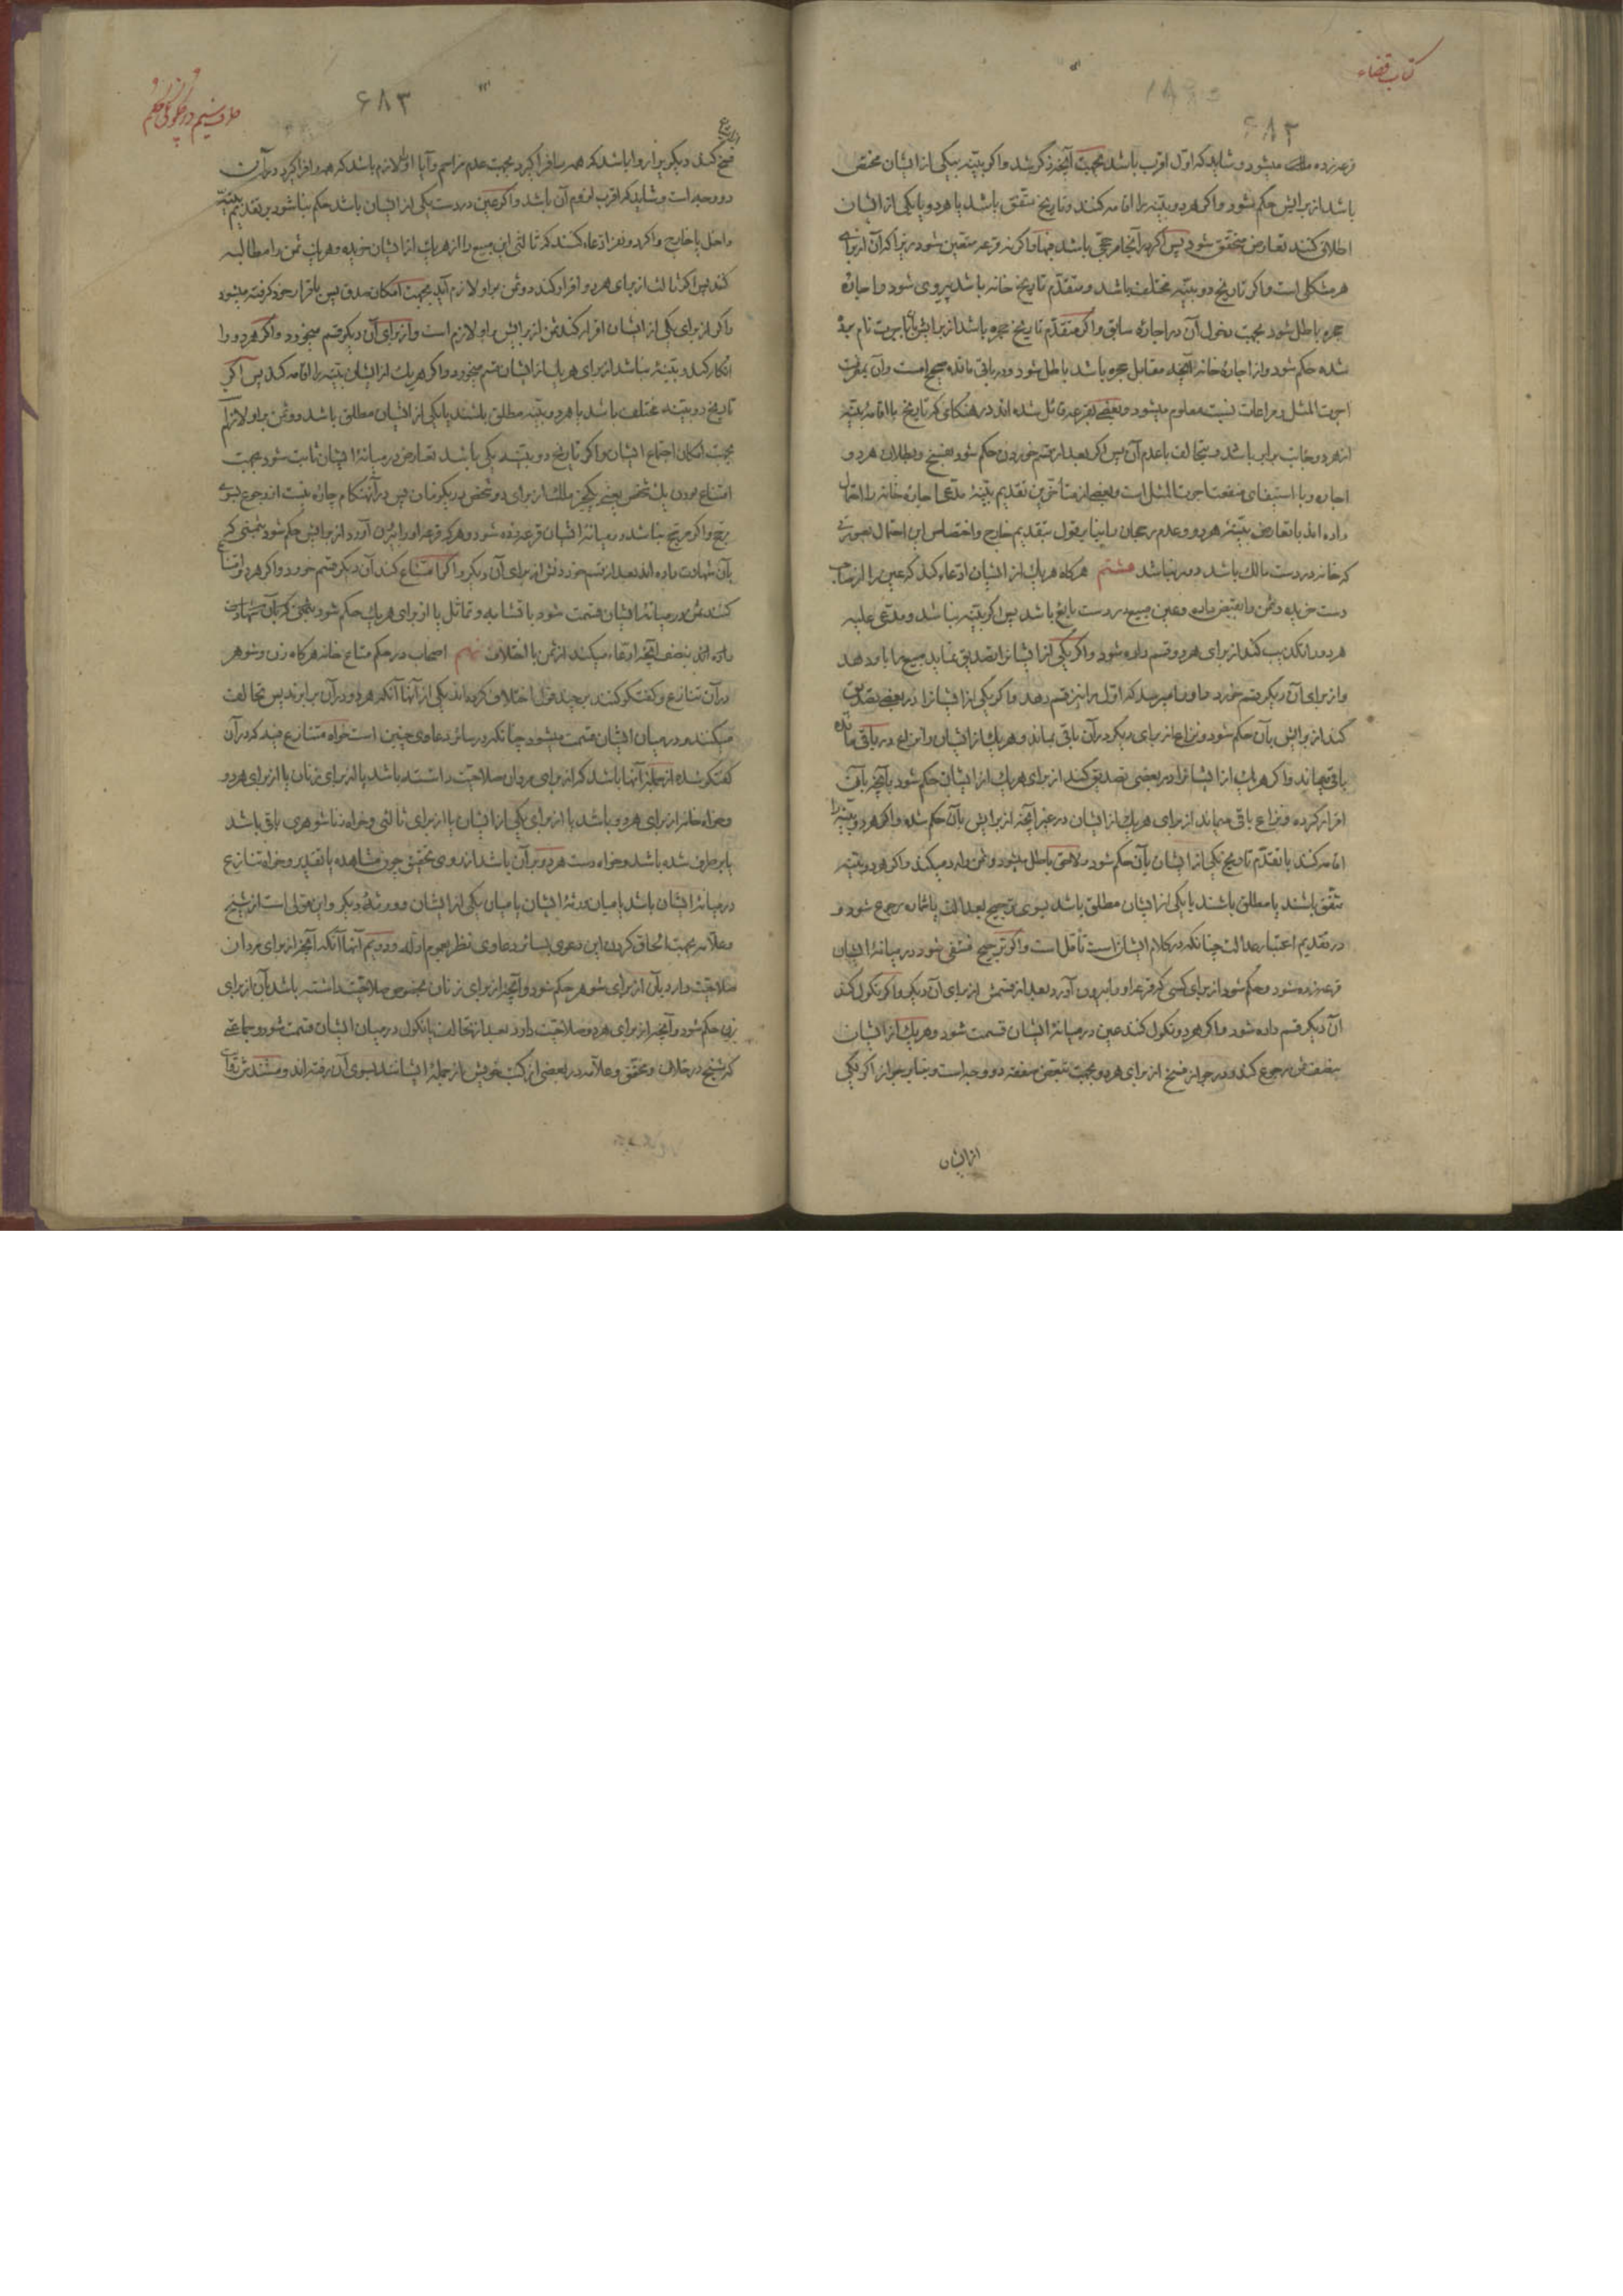 کتاب قضاء
۶۸۲
قرعه زده میشود و شاید که اول اقرب باشد بجهت آنچه ذکر شد و اگر بینه بیکی از ایشان مختص
باشد از برایش حکم شود و اگر هر دو بینه را اقامه کنند و تاریخ متفق باشد یا هر دو یا یکی از ایشان
اطلاق کنند تعارض متحقق شود پس اگر در آنجا مرجحی باشد فبها و اگر نه قرعه متعین شود زیرا که آن از برای
هر مشکلی است و اگر تاریخ دو بینه مختلف باشد و متقدم تاریخ خانه باشد پیروی شود و اجارهٔ
حجره باطل شود بجهت دخول آن در اجارهٔ سابق و اگر متقدم تاریخ حجره باشد از برایش با اجرت نام برده
شده حکم شود و از اجارهٔ خانه آنچه مقابل حجره باشد باطل شود و در باقی مانده صحیح است و آن بمعرفت
اجرت المثل و مراعات نسبت معلوم میشود و بعضی بقرعه قائل شده اند در هنگامی که تاریخ با اقامهٔ بینه
از هر دو جانب برابر باشد و بتحالف با عدم آن پس اگر بعد از قسم خوردن حکم شود بفسخ و بطلان هر دو
اجاره و با استیفای منفعت اجرت المثل است و بعضی از متأخرین تقدیم بینهٔ مدعی اجارهٔ خانه را احتمال
داده اند با تعارض بینهٔ هر دو و عدم رجحان و اینبنا بر قول بتقدیم خارج و اختصاص این احتمال بصورتی
که خانه در دست مالک باشد دور نباشد هشتم هرگاه هر یک از ایشان ادعاء کند که عین را از صاحب
دست خریده و ثمن را بقبض داده و عین مبیع در دست بایع باشد پس اگر بینه نباشد و مدعی علیه
هر دو را تکذیب کند از برای هر دو قسم داده شود و اگر یکی از ایشانرا تصدیق نماید مبیع را باو دهد
و از برای آن دیگر قسم خورد و او را میرسد که اول را نیز قسم دهد و اگر یکی از ایشانرا در بعضی تصدیق
کند از برایش بآن حکم شود و نزاع از برای دیگر در آن باقی بماند و هر یک از ایشان را نزاع در باقی مانده
باقی میماند و اگر هر یک از ایشانرا در بعضی تصدیق کند از برای هر یک از ایشان حکم شود بآنچه باو
اقرار کرده و نزاع باقی میماند از برای هر یک از ایشان در غیر آنچه از برایش بآن حکم شده و اگر هر دو بینه را
اقامه کنند با تقدم تاریخ یکی از ایشان بآن حکم شود و لاحق باطل میشود و ثمن را رد میکند و اگر هر دو بینه
متفق باشند یا مطلق باشند یا یکی از ایشان مطلق باشد بسوی ترجیح بعدالت یا شماره رجوع شود و
در تقدیم اعتبار عدالت چنانکه در کلام ایشانست تأمل است و اگر ترجیح منتفی شود در میانهٔ ایشان
قرعه زده شود و حکم شود از برای کسی که قرعه او را بیرون آورد بعد از قسمش از برای آن دیگر و اگر نکول کند
آن دیگر قسم داده شود و اگر هر دو نکول کنند عین در میانهٔ ایشان قسمت شود و هر یک از ایشان
بنصف ثمن رجوع کند و در جواز فسخ از برای هر دو بجهت تبعض صفقه دو وجه است و بنابر جواز اگر یکی
از ایشان
۶۸۳
فسخ کند دیگر برا روا باشد که همه را فرا گیرد بجهت عدم مزاحم و آیا او را لازم باشد که همه را فرا گیرد در آن
دو وجه است و شاید که اقرب لزوم آن باشد و اگر عین در دست یکی از ایشان باشد حکم بنا شود بر تقدیم بینهٔ
داخل یا خارج و اگر دو نفر ادعاء کنند که ثالثی این مبیع را از هر یک از ایشان خریده و هر یک ثمن را مطالبه
کند پس اگر ثالث از برای هر دو اقرار کند دو ثمن بر او لازم آید بجهت امکان صدق پس باقرار خود گرفته میشود
و اگر از برای یکی از ایشان اقرار کند ثمن از برایش بر او لازم است و از برای آن دیگر قسم میخورد و اگر هر دو را
انکار کند و بینهٔ نباشد از برای هر یک از ایشان قسم میخورد و اگر هر یک از ایشان بینه را اقامه کند پس اگر
تاریخ دو بینه مختلف باشد یا هر دو بینه مطلق باشند یا یکی از ایشان مطلق باشد دو ثمن بر او لازم آید
بجهت امکان اجتماع ایشان و اگر تاریخ دو بینه یکی باشد تعارض در میانهٔ ایشان ثابت شود بجهت
امتناع بودن یک شخص بعینه یکچیز ملک از برای دو شخص در یکزمان پس در آنهنگام چاره نیست از رجوع بسوی
مرجح و اگر مرجح نباشد در میانهٔ ایشان قرعه زده شود و هر که قرعه او را بیرون آورد از برایش حکم شود بثمنی که
بآن شهادت داده اند بعد از قسم خوردنش از برای آن دیگر و اگر امتناع کند آن دیگر قسم خورد و اگر هر دو امتناع
کنند ثمن در میانهٔ ایشان قسمت شود با تشابه و تماثل یا از برای هر یک حکم شود بثمنی که بآن شهادت
داده اند بنصف آنچه ادعاء میکند از ثمن با اختلاف نهم اصحاب در حکم متاع خانه هرگاه زن و شوهر
در آن تنازع و گفتگو کنند بر چند قول اختلاف کرده اند یکی از آنها آنکه هر دو در آن برابرند پس تحالف
میکنند و در میان ایشان قسمت میشود چنانکه در سائر دعاوی چنین است خواه متنازع فیه که در آن
گفتگو شده از جملهٔ آنها باشد که از برای مردان صلاحیت داشته باشد یا از برای زنان یا از برای هر دو
و خواه خانه از برای هر دو باشد یا از برای یکی از ایشان یا از برای ثالثی و خواه زناشوهری باقی باشد
یا برطرف شده باشد و خواه دست هر دو بر آن باشد از روی تحقیق چون مشاهده یا تقدیر و خواه تنازع
در میانهٔ ایشان باشد یا میان ورثهٔ ایشان یا میان یکی از ایشان و ورثهٔ دیگر و این قولی است از شیخ
و علامه بجهت الحاق کردن این دعوی بسائر دعاوی نظر بعموم ادله و دویم آنها آنکه آنچه از برای مردان
صلاحیت دارد بآن از برای شوهر حکم شود و آنچه از برای زنان بخصوص صلاحیت داشته باشد بآن از برای
زن حکم شود و آنچه از برای هر دو صلاحیت دارد بعد از تحالف یا نکول در میان ایشان قسمت شود و جماعتی
که شیخ در خلاف و محقق و علامه در بعضی از کتب خویش از جملهٔ ایشانند بسوی آن رفته اند و مستند